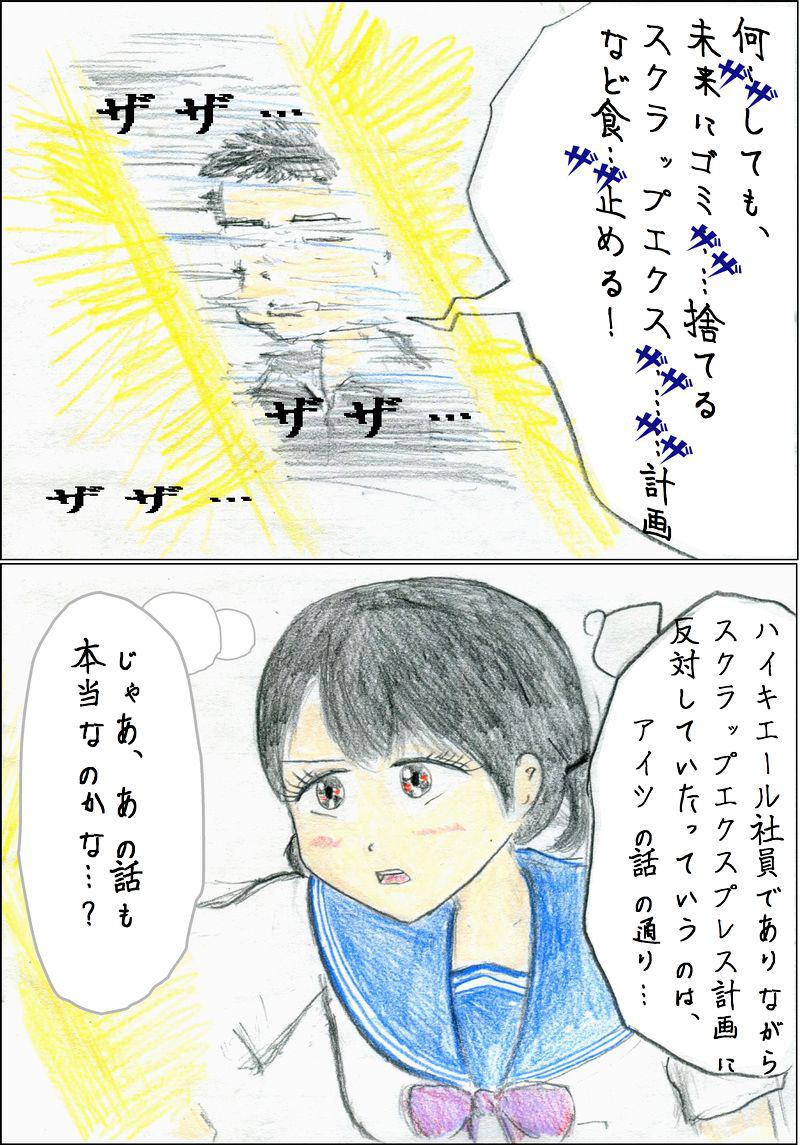 何ザザしても、
未来にゴミザザ…捨てる
スクラップエクスザザ……ザザ計画
など食…ザザ止める！
ザザ…
ザザ…
ザザ…
ハイキエール社員でありながら
スクラップエクスプレス計画に
反対していたっていうのは、
アイツの話の通り…
じゃあ、あの話も
本当なのかな…？